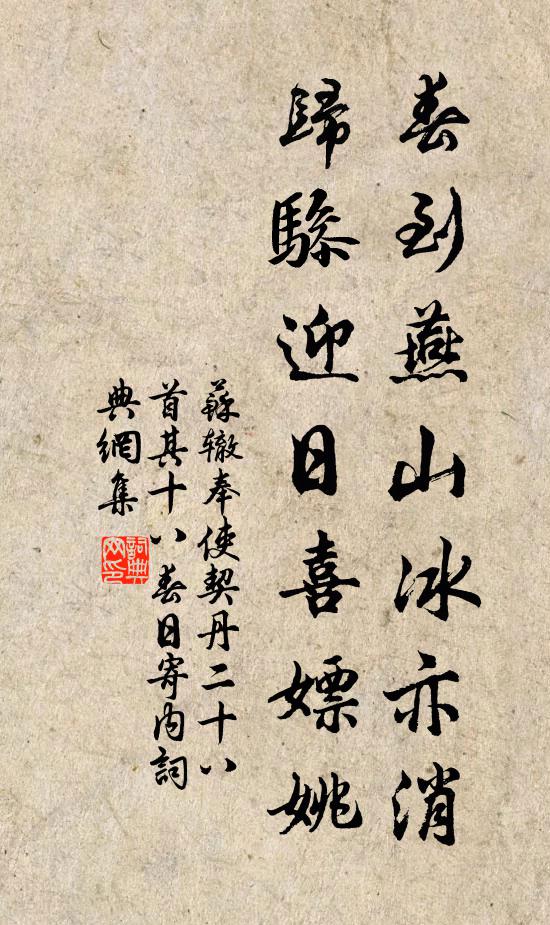 春到燕山冰亦消
歸驂迎日喜嫖姚
蘇轍奉使契丹二十八
首其十八春日寄內詞
典網集
詞典
网印